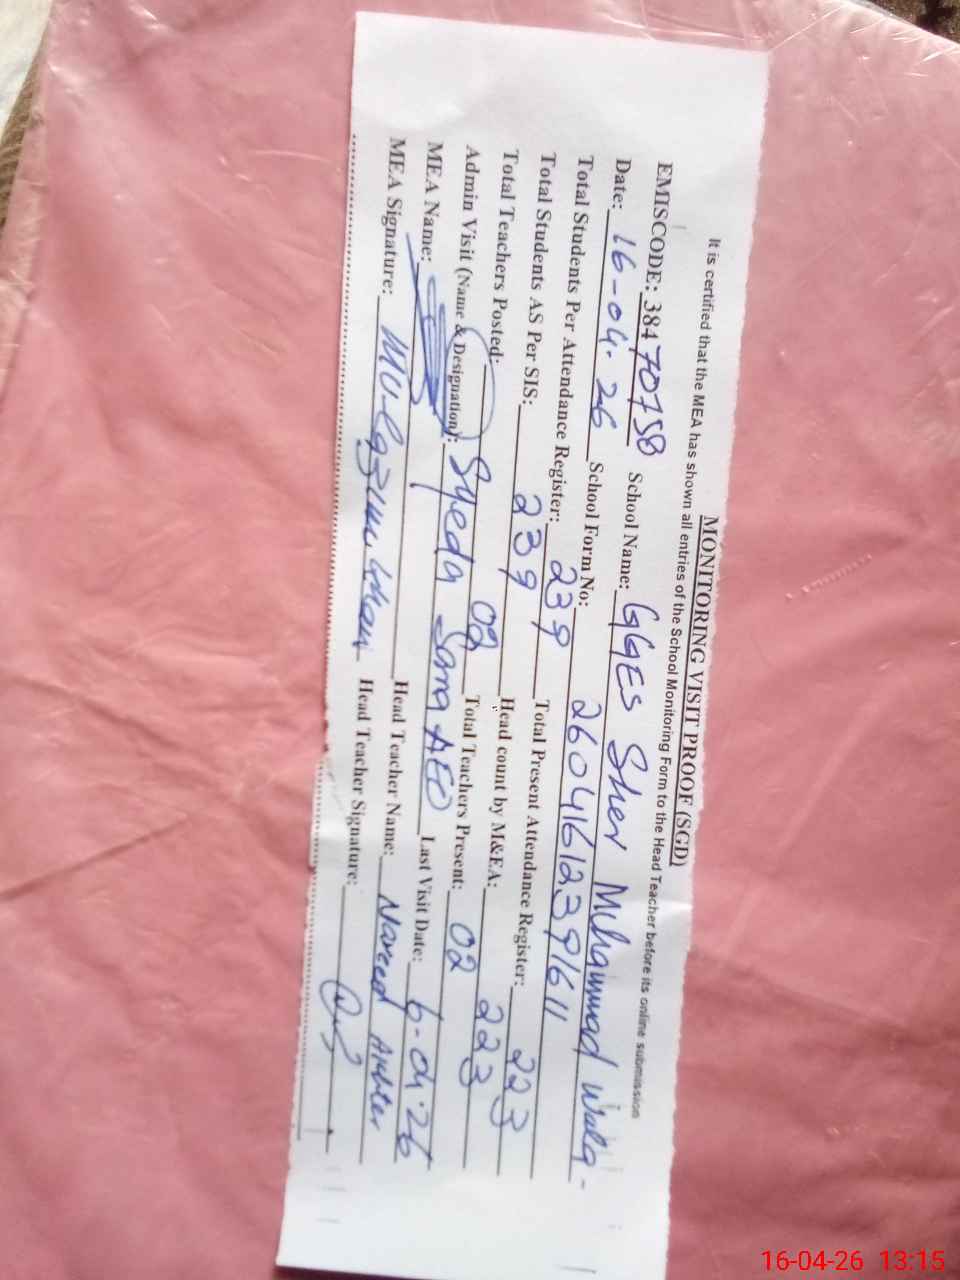 MONITORING VISIT PROOF (SGD)
It is certified that the MEA has shown all entries of the School Monitoring Form to the Head Teacher before its online submission
EMISCODE: 38470758 School Name: GGES Sher Muhammad Wala-
Date: 16-04-26 School Form No: 26041612391611
Total Students Per Attendance Register: 239 Total Present Attendance Register: 223
Total Students AS Per SIS: 239 Head count by M&EA: 223
Total Teachers Posted: 02 Total Teachers Present: 02
Admin Visit (Name & Designation): Syeda Sana AEO Last Visit Date: 6-04-26
MEA Name: Head Teacher Name: Naveed Akhter
MEA Signature: Head Teacher Signature:
16-04-26 13:15